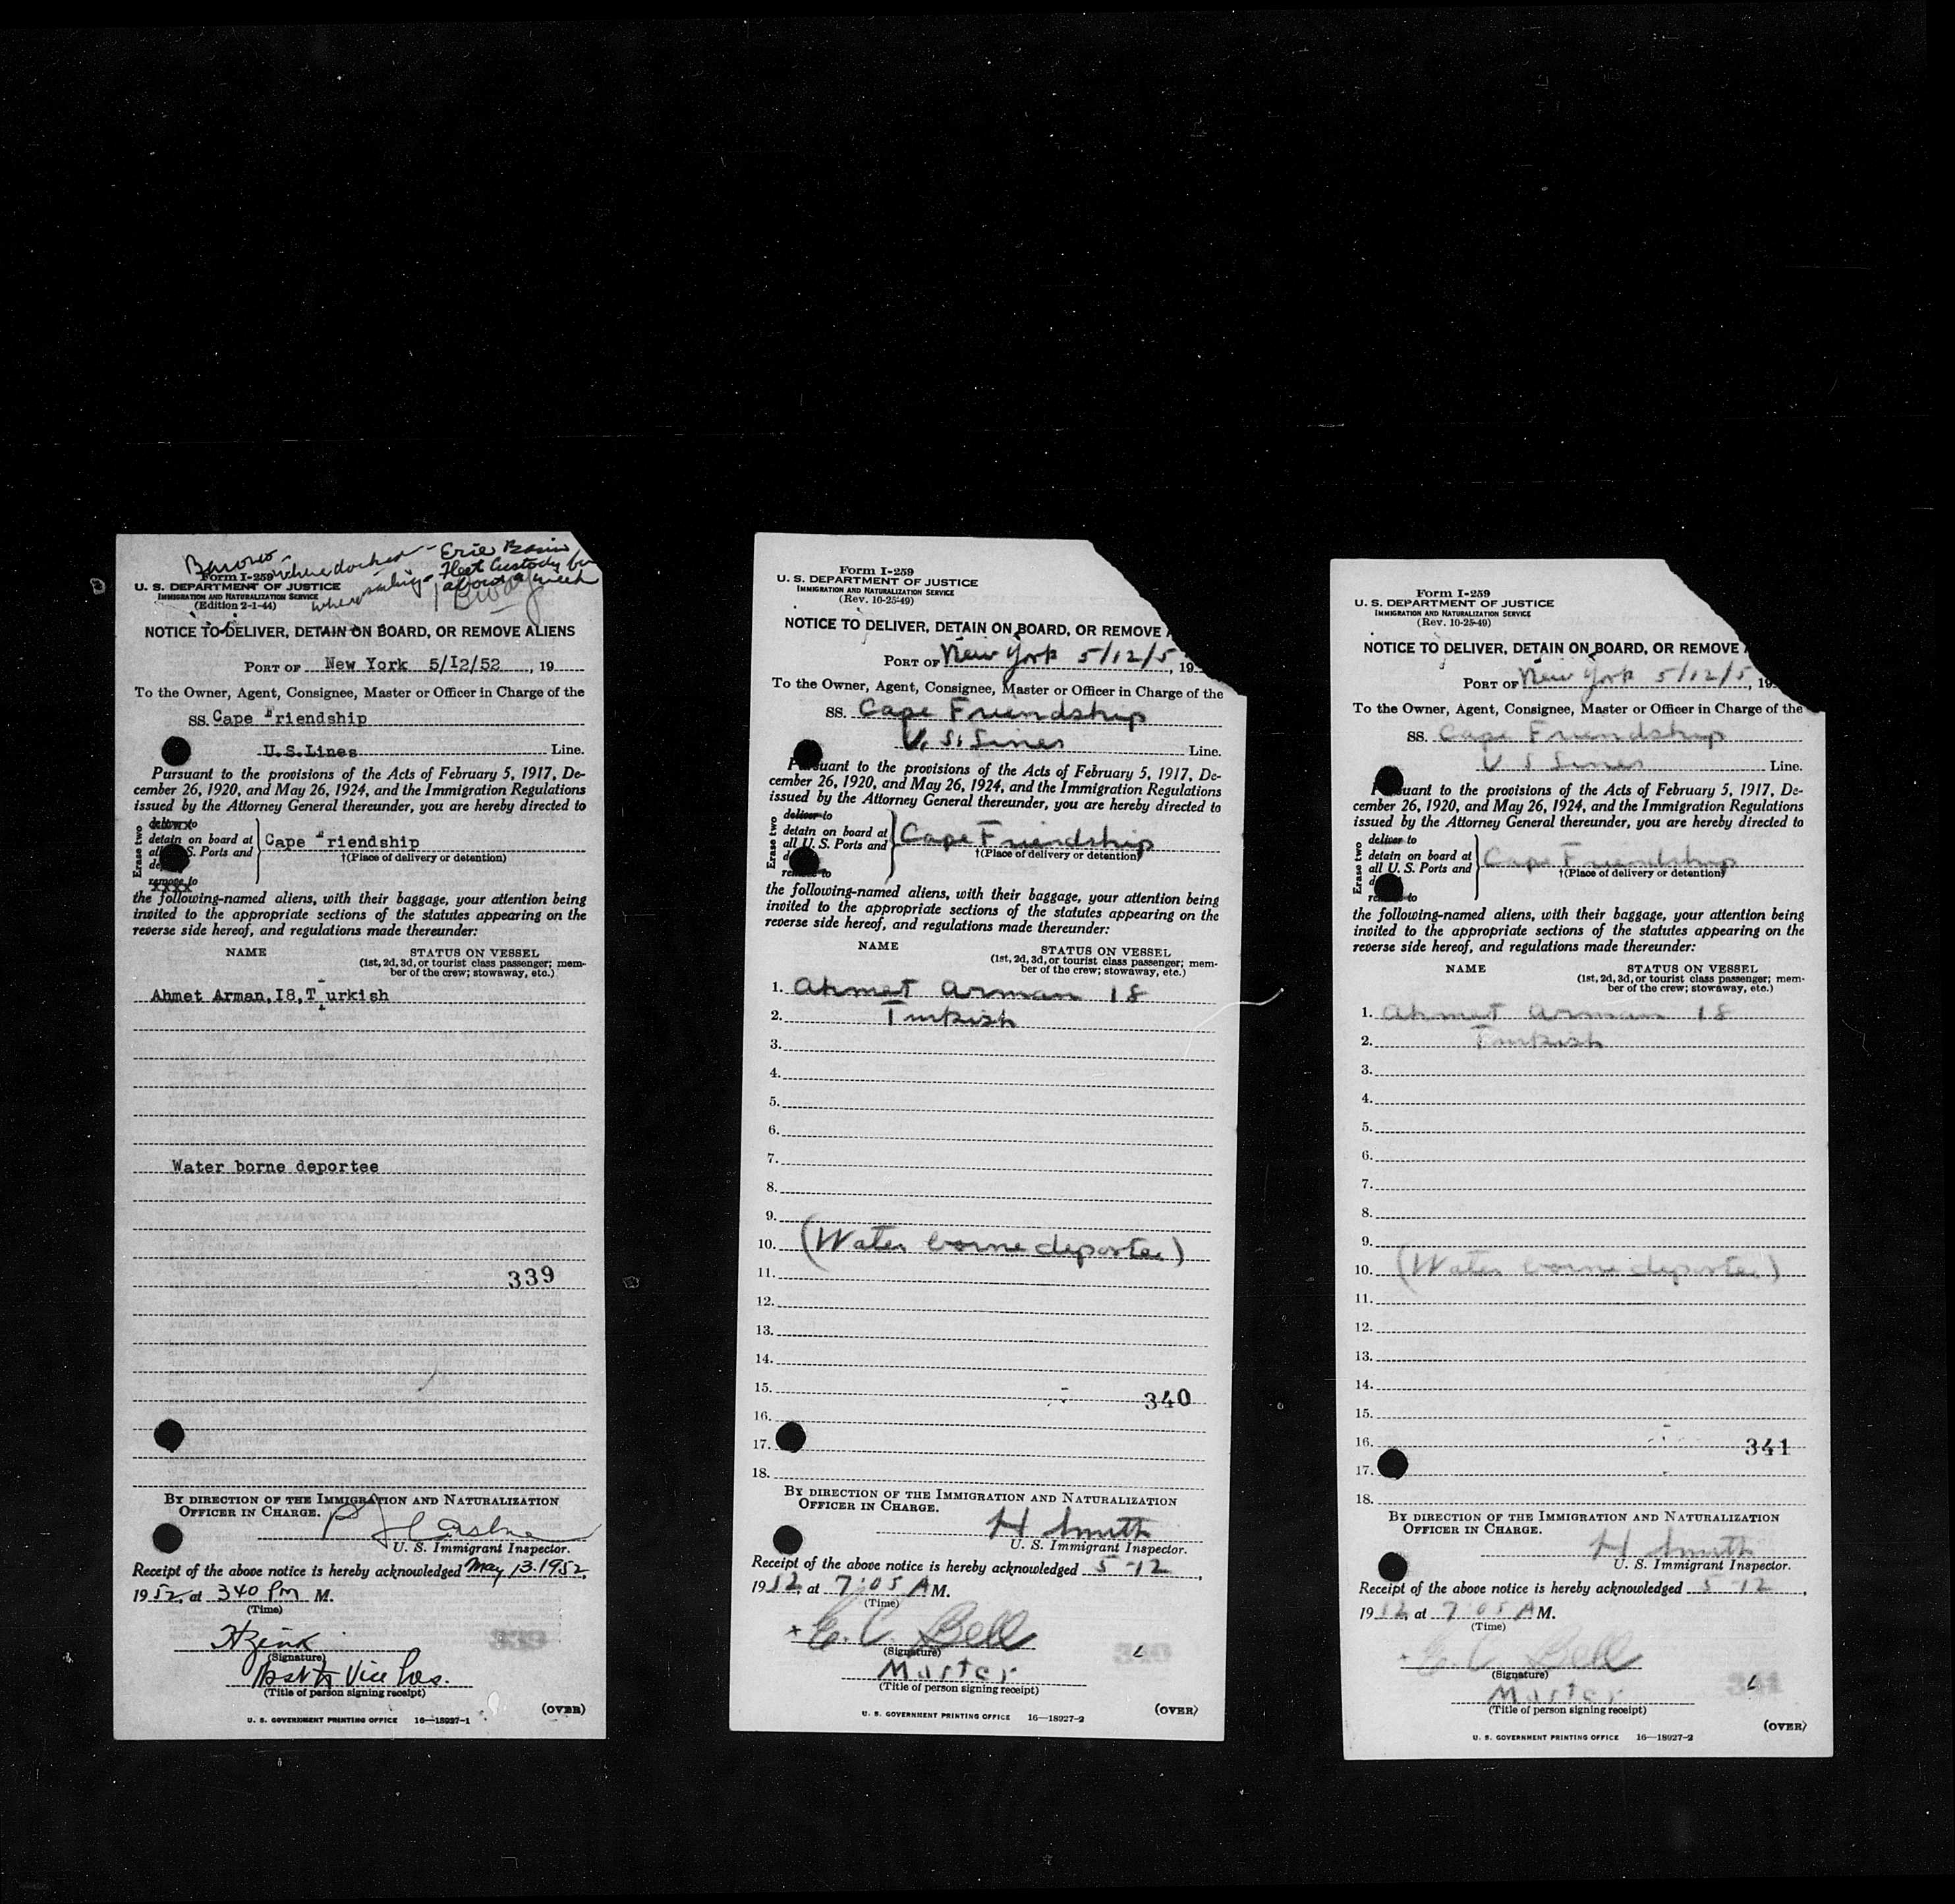 Barone where docked - Erie Basin
where sailing - Fleet Custody for
about a week
Form I-259
U. S. DEPARTMENT OF JUSTICE
IMMIGRATION AND NATURALIZATION SERVICE
(Edition 2-1-44)
NOTICE TO DELIVER, DETAIN ON BOARD, OR REMOVE ALIENS
PORT OF New York 5/I2/52, 19
To the Owner, Agent, Consignee, Master or Officer in Charge of the
SS. Cape Friendship
U.S.Lines Line.
Pursuant to the provisions of the Acts of February 5, 1917, De-
cember 26, 1920, and May 26, 1924, and the Immigration Regulations
issued by the Attorney General thereunder, you are hereby directed to
Erase two
deliver to
detain on board at
all U. S. Ports and
Cape Friendship
†(Place of delivery or detention)
remove to
the following-named aliens, with their baggage, your attention being
invited to the appropriate sections of the statutes appearing on the
reverse side hereof, and regulations made thereunder:
NAME STATUS ON VESSEL
(1st, 2d, 3d, or tourist class passenger; mem-
ber of the crew; stowaway, etc.)
Ahmet Arman,I8,Turkish
Water borne deportee
339
BY DIRECTION OF THE IMMIGRATION AND NATURALIZATION
OFFICER IN CHARGE.
U. S. Immigrant Inspector.
Receipt of the above notice is hereby acknowledged May 13.1952,
1952, at 340 Pm M.
(Time)
(Signature)
Asst to Vice Pres.
(Title of person signing receipt)
(OVER)
U. S. GOVERNMENT PRINTING OFFICE 16—18927-1
Form I-259
U. S. DEPARTMENT OF JUSTICE
IMMIGRATION AND NATURALIZATION SERVICE
(Rev. 10-25-49)
NOTICE TO DELIVER, DETAIN ON BOARD, OR REMOVE A
PORT OF New York 5/12/5, 19
To the Owner, Agent, Consignee, Master or Officer in Charge of the
SS. Cape Friendship
U. S. Lines Line.
Pursuant to the provisions of the Acts of February 5, 1917, De-
cember 26, 1920, and May 26, 1924, and the Immigration Regulations
issued by the Attorney General thereunder, you are hereby directed to
Erase two
deliver to
detain on board at
all U. S. Ports and
Cape Friendship
†(Place of delivery or detention)
remove to
the following-named aliens, with their baggage, your attention being
invited to the appropriate sections of the statutes appearing on the
reverse side hereof, and regulations made thereunder:
NAME STATUS ON VESSEL
(1st, 2d, 3d, or tourist class passenger; mem-
ber of the crew; stowaway, etc.)
1. Ahmet Arman 18
2. Turkish
3.
4.
5.
6.
7.
8.
9.
10. (Water borne deportee)
11.
12.
13.
14.
15.
340
16.
17.
18.
BY DIRECTION OF THE IMMIGRATION AND NATURALIZATION
OFFICER IN CHARGE.
H Smith
U. S. Immigrant Inspector.
Receipt of the above notice is hereby acknowledged 5-12,
1952, at 7:05 A M.
(Time)
x E. C. Bell
(Signature)
Master
(Title of person signing receipt)
(OVER)
U. S. GOVERNMENT PRINTING OFFICE 16—18927-2
Form I-259
U. S. DEPARTMENT OF JUSTICE
IMMIGRATION AND NATURALIZATION SERVICE
(Rev. 10-25-49)
NOTICE TO DELIVER, DETAIN ON BOARD, OR REMOVE A
PORT OF New York 5/12/5, 19
To the Owner, Agent, Consignee, Master or Officer in Charge of the
SS. Cape Friendship
U S Lines Line.
Pursuant to the provisions of the Acts of February 5, 1917, De-
cember 26, 1920, and May 26, 1924, and the Immigration Regulations
issued by the Attorney General thereunder, you are hereby directed to
Erase two
deliver to
detain on board at
all U. S. Ports and
Cape Friendship
†(Place of delivery or detention)
remove to
the following-named aliens, with their baggage, your attention being
invited to the appropriate sections of the statutes appearing on the
reverse side hereof, and regulations made thereunder:
NAME STATUS ON VESSEL
(1st, 2d, 3d, or tourist class passenger; mem-
ber of the crew; stowaway, etc.)
1. Ahmet Arman 18
2. Turkish
3.
4.
5.
6.
7.
8.
9.
10. (Water borne deportee)
11.
12.
13.
14.
15.
16.
341
17.
18.
BY DIRECTION OF THE IMMIGRATION AND NATURALIZATION
OFFICER IN CHARGE.
H Smith
U. S. Immigrant Inspector.
Receipt of the above notice is hereby acknowledged 5-12,
1952, at 7:05 A M.
(Time)
E. C. Bell
(Signature)
Master
(Title of person signing receipt)
(OVER)
U. S. GOVERNMENT PRINTING OFFICE 16—18927-2